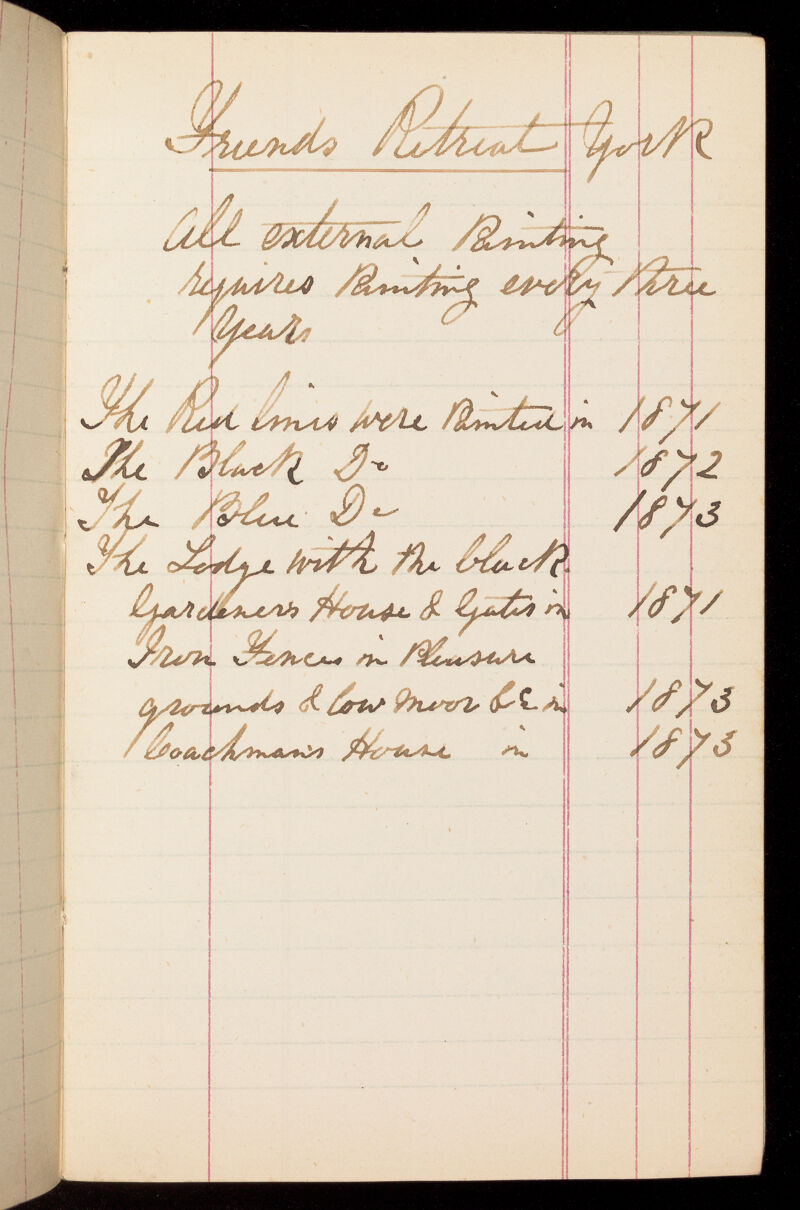 Friends Retreat York
All external Painting
requires Painting every three
Years
The Red lines were Painted in 1871
The Black Do 1872
The Blue Do 1873
The Lodge with the black
Gardeners House & Gates in 1871
Iron Fences in Pleasure
grounds & low moor &c in 1873
Coachman's House in 1873